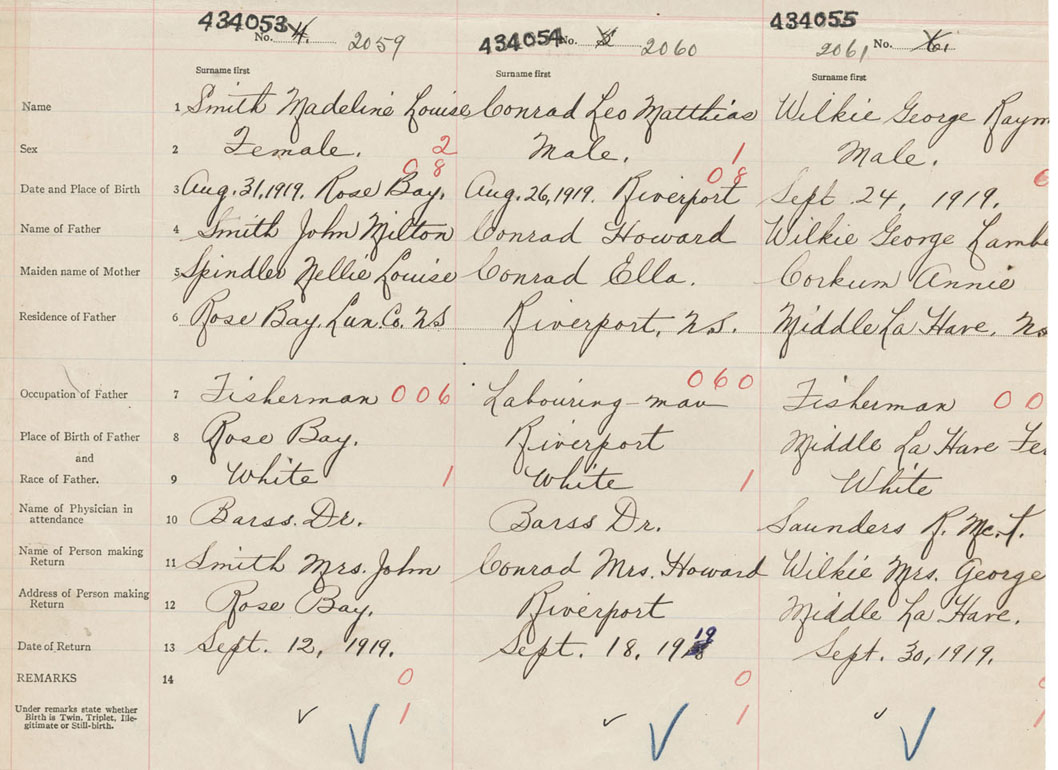 434053 434054 434055
No. 4. 2059 No. 5 2060 2061 No. 6.
Surname first Surname first Surname first
Name 1 Smith Madeline Louise Conrad Leo Matthias Wilkie George Raym
Sex 2 Female. 2 Male. 1 Male.
08 08
Date and Place of Birth 3 Aug. 31, 1919. Rose Bay. Aug. 26, 1919. Riverport Sept 24, 1919.
Name of Father 4 Smith John Milton Conrad Howard Wilkie George Lambe
Maiden name of Mother 5 Spindler Nellie Louise Conrad Ella. Corkum Annie
Residence of Father 6 Rose Bay. Lun. Co. NS Riverport, N.S. Middle La Have, Ns
Occupation of Father 7 Fisherman 006 Labouring-man 060 Fisherman 00
Place of Birth of Father 8 Rose Bay. Riverport Middle La Have Fe
and
Race of Father. 9 White 1 White 1 White
Name of Physician in
attendance 10 Barss. Dr. Barss Dr. Saunders R. Mc.T.
Name of Person making
Return 11 Smith Mrs. John Conrad Mrs. Howard Wilkie Mrs. George
Address of Person making
Return 12 Rose Bay. Riverport Middle La Have.
Date of Return 13 Sept. 12, 1919. Sept. 18, 1919 Sept. 30, 1919.
REMARKS 14 0 0
Under remarks state whether
Birth is Twin, Triplet, Ille-
gitimate or Still-birth. 1 1 1